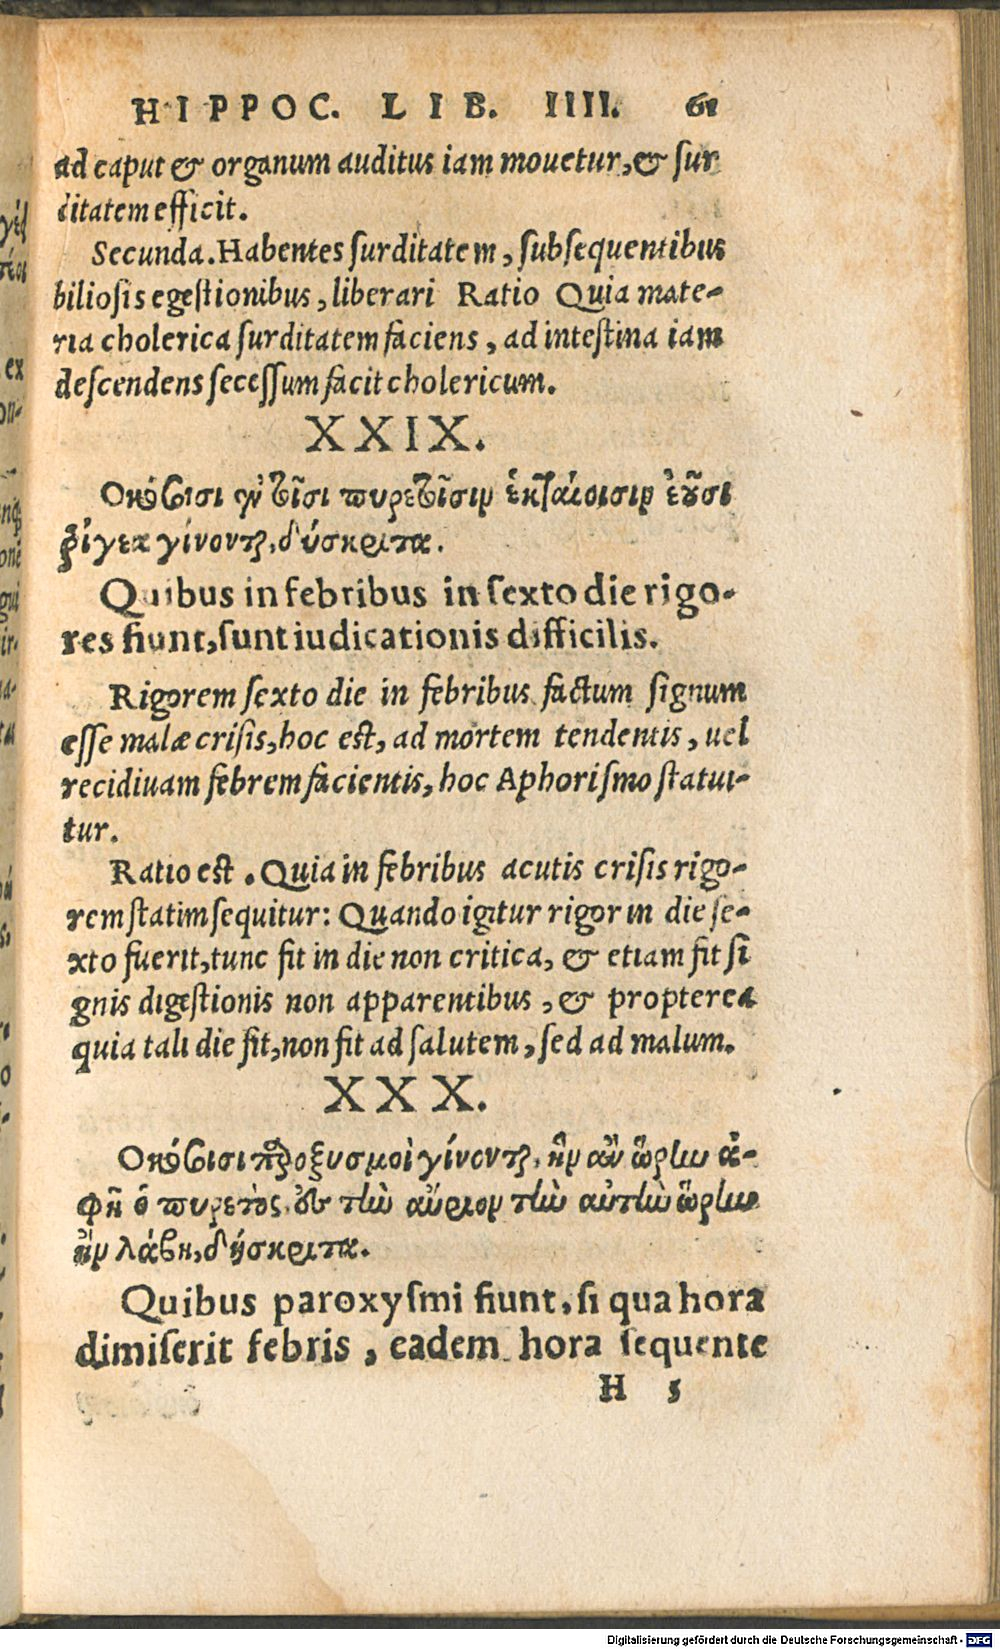 HIPPOC. LIB. IIII. 61
ad caput & organum auditus iam mouetur, & sur
ditatem efficit.
Secunda. Habentes surditatem, subsequentibus
biliosis egestionibus, liberari Ratio Quia mate-
ria cholerica surditatem faciens, ad intestina iam
descendens secessum facit cholericum.
XXIX.
Οκόσοισι ἐν τοῖσι πυρετοῖσιν ἑκταίοισιν ἐοῦσι
ῥίγεα γίνονται, δύσκριτα.
Quibus in febribus in sexto die rigo-
res fiunt, sunt iudicationis difficilis.
Rigorem sexto die in febribus factum signum
esse malæ crisis, hoc est, ad mortem tendentis, uel
recidiuam febrem facientis, hoc Aphorismo statui-
tur.
Ratio est. Quia in febribus acutis crisis rigo-
rem statim sequitur: Quando igitur rigor in die se-
xto fuerit, tunc fit in die non critica, & etiam fit si
gnis digestionis non apparentibus, & propterea
quia tali die fit, non fit ad salutem, sed ad malum.
XXX.
Οκόσοισι παροξυσμοὶ γίνονται, ἣν ἂν ὥρην ἀ-
φῇ ὁ πυρετὸς, ἐς τὴν αὔριον τὴν αὐτὴν ὥρην
ἢν λάβῃ, δύσκριτα.
Quibus paroxysmi fiunt, si qua hora
dimiserit febris, eadem hora sequente
H 5
Digitalisierung gefördert durch die Deutsche Forschungsgemeinschaft - DFG